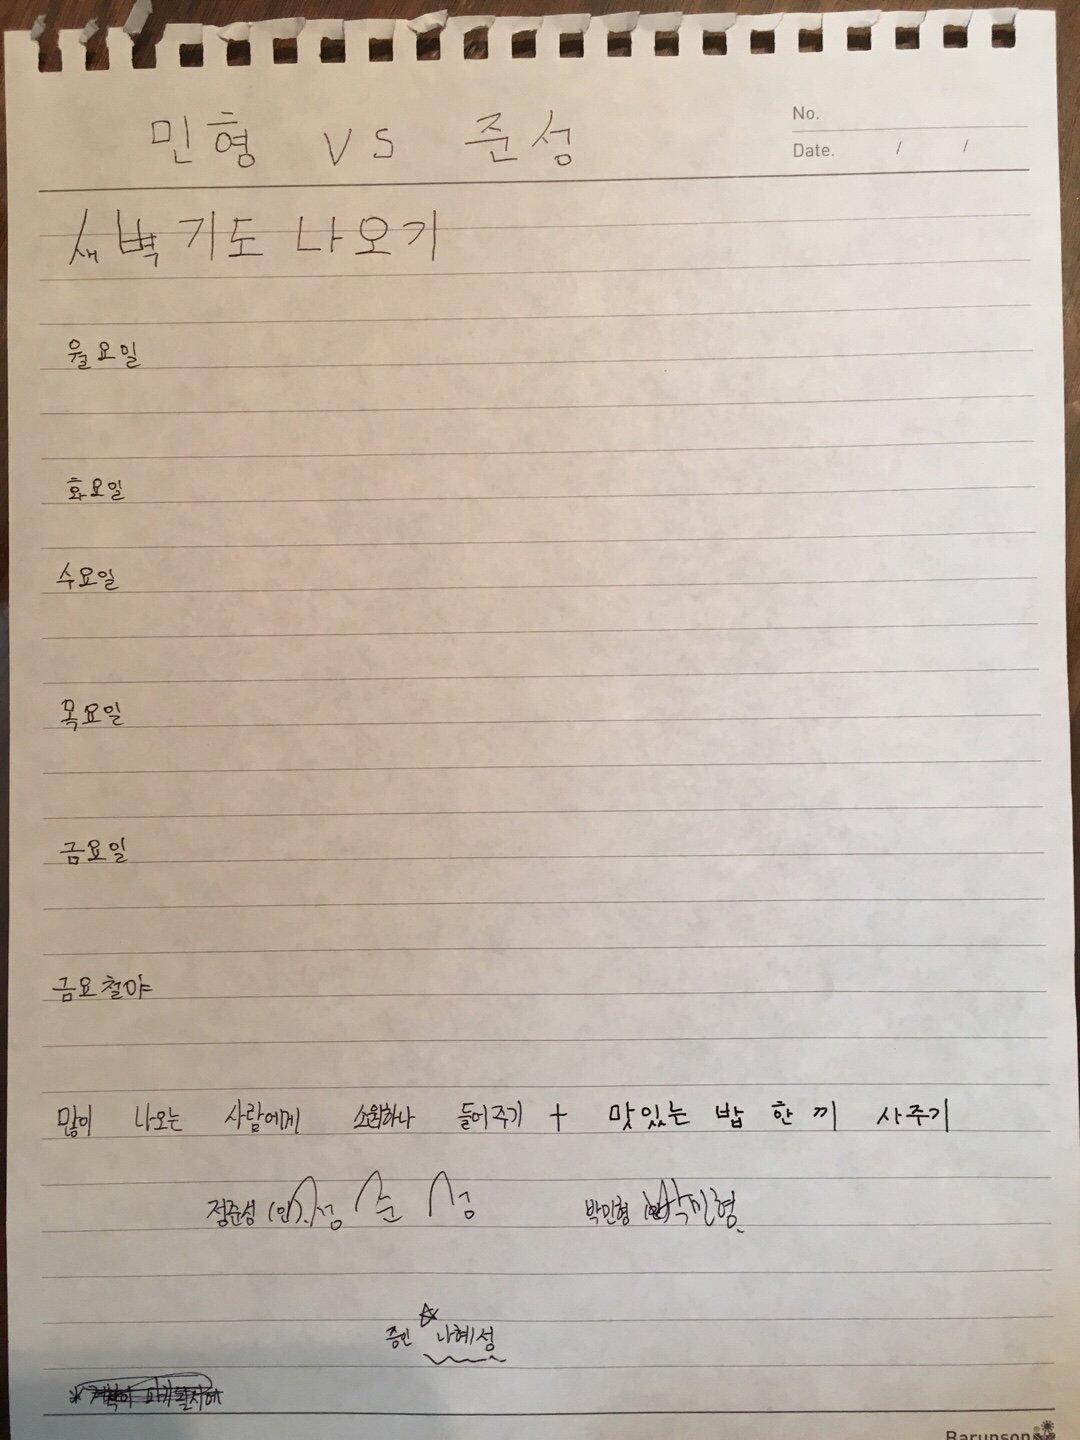 민형 VS 준성
No.
Date. / /
새벽기도 나오기
월요일
화요일
수요일
목요일
금요일
금요철야
많이 나오는 사람에게 소원하나 들어주기 + 맛있는 밥 한 끼 사주기
정준성 (인) 정준성 박민형 (인) 박민형
증인 나혜성
Barunson